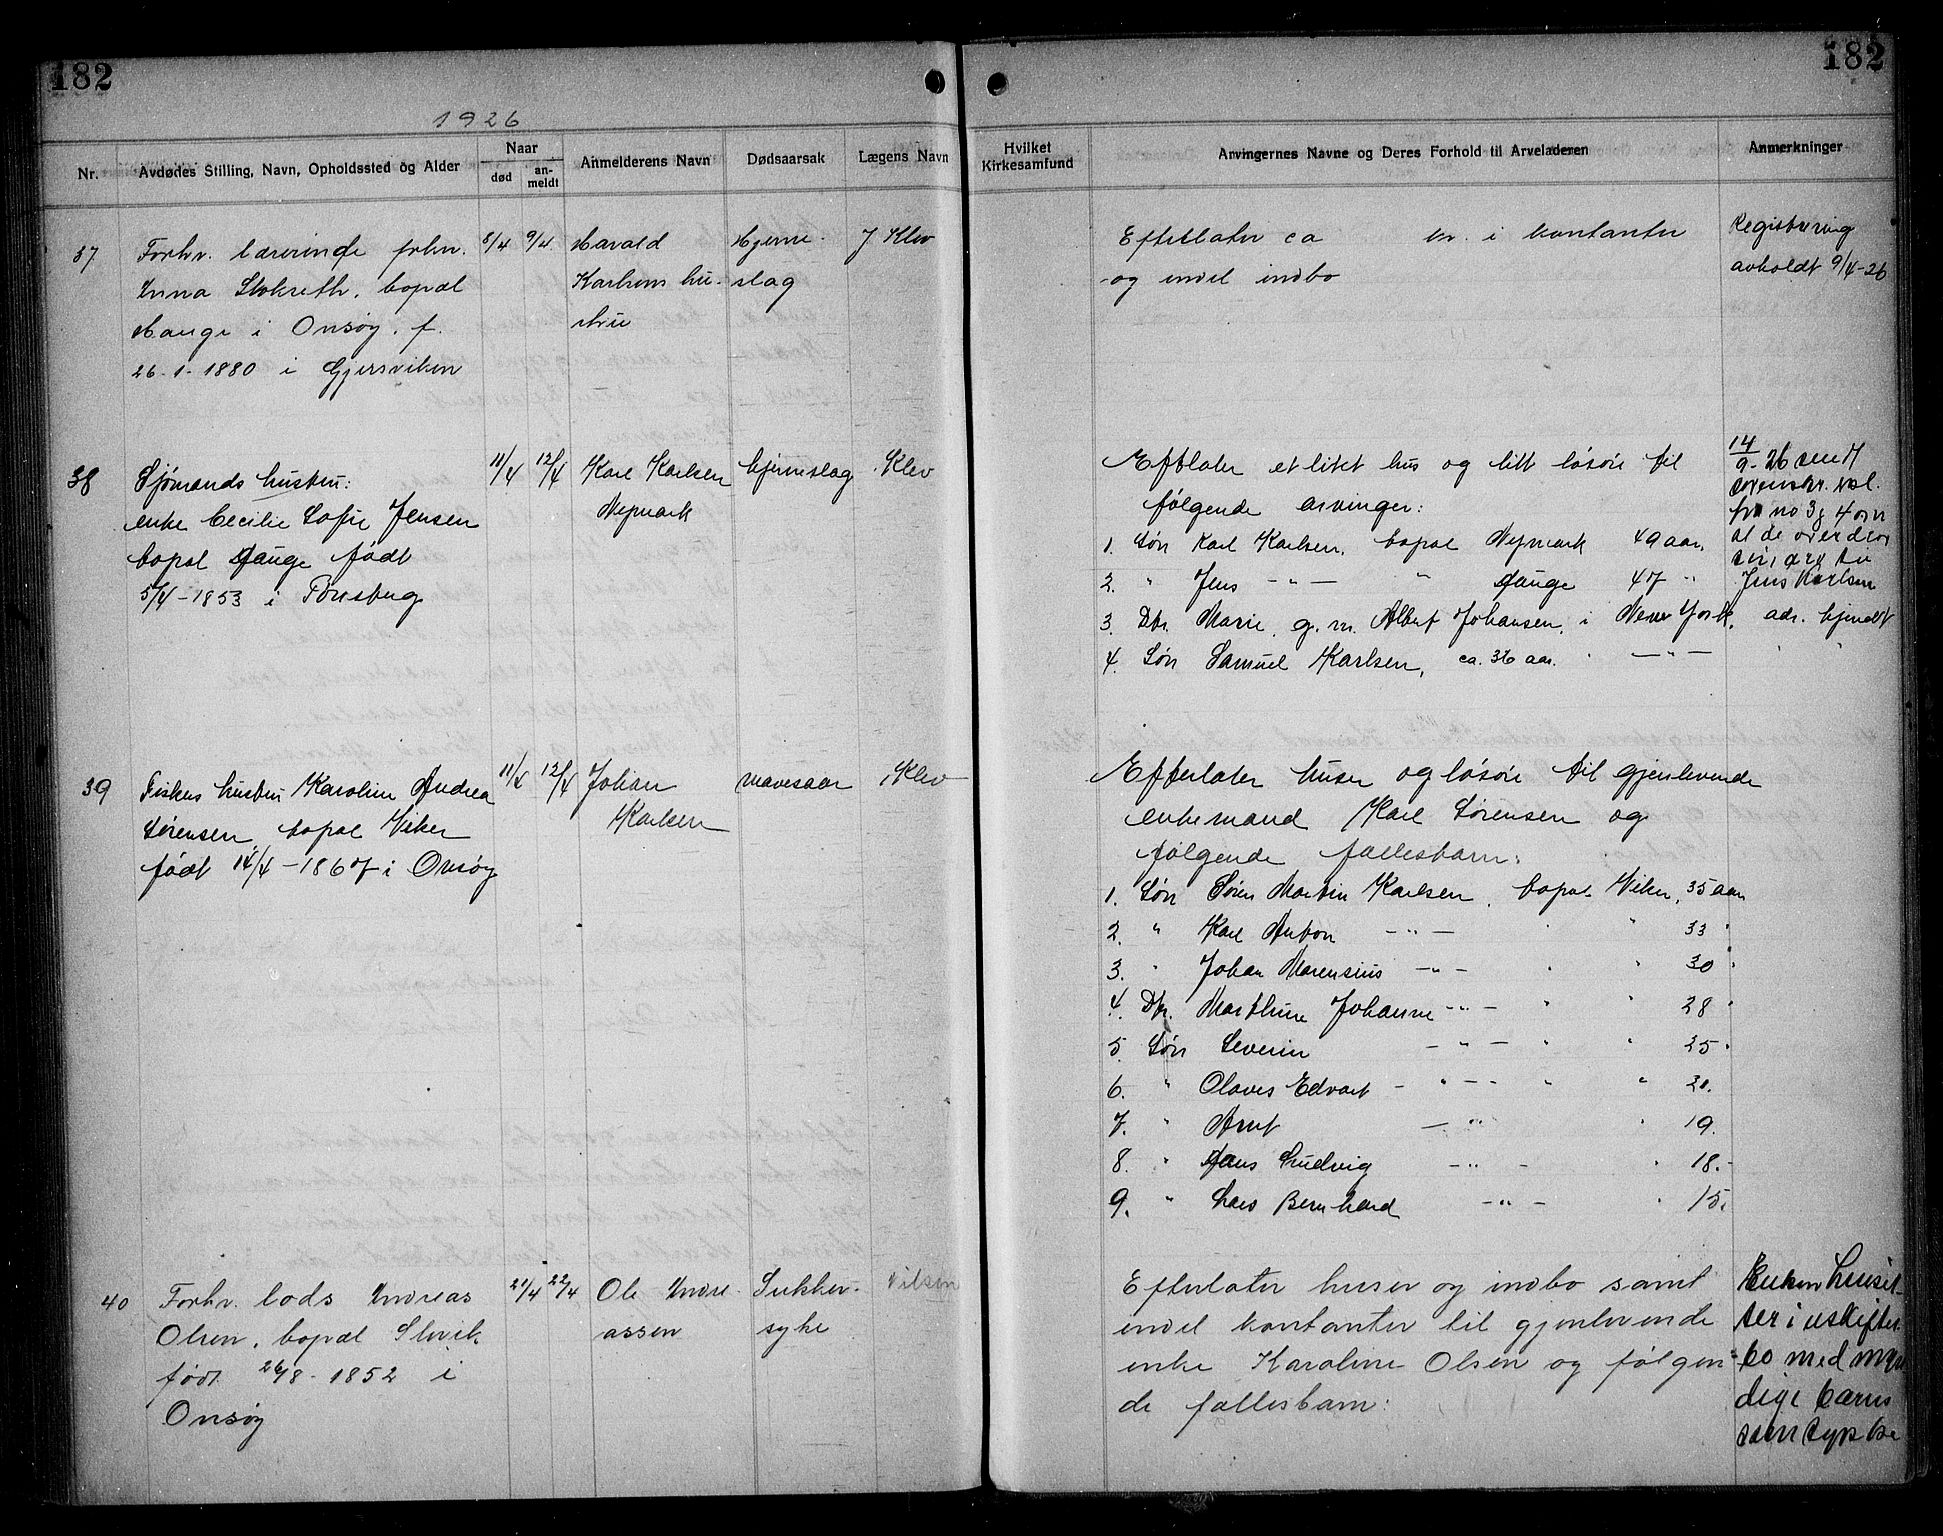 182
182
1926
Nr.
Avdødes Stilling, Navn, Opholdssted og Alder
Naar
død
an-
meldt
Anmelderens Navn
Dødsaarsak
Lægens Navn
Hvilket
Kirkesamfund
Arvingernes Navne og Deres Forhold til Arveladeren
Anmerkninger
37
Forhv. lærerinde frkn.
Anna Stokreth, bopæl
Hauge i Onsøy. f.
26-1-1880 i Gjersviken
8/4
9/4
Harald
Karlsens hu-
stru
Hjerne-
slag
J Klev
Efterlater ca kr. i kontanter
og endel indbo
Registrering
avholdt 9/4-26
38
Sjømands hustru:
enke Cecilie Sofie Jensen
bopæl Hauge født
5/4-1853 i Tønsberg
11/4
12/4
Karl Karlsen
Nymark
hjerneslag
Klev
Efterlater et litet hus og litt løsøre til
følgende arvinger:
1. Søn Karl Karlsen, bopæl Nymark 49 aar,
2. " Jens - " - " Hauge 47 "
3. Dtr. Marie, g. m. Albert Johansen, i New York, adr. ukjendt
4. Søn Samuel Karlsen, ca. 36 aar. " - " - " "
14/9-26 sendt
sorenskr.
fra no 3 og 4 om
at de overdrar
sin arv til
Jens Karlsen
39
Fiskers hustru Karoline Andrea
Sørensen, bopæl Viker
født 14/4-1867 i Onsøy
11/4
12/4
Johan
Karlsen
mavesaar
Klev
Efterlater huser og løsøre til gjenlevende
enkemand Karl Sørensen og
følgende fællesbarn:
1. Søn Søren Martin Karlsen, bopæl Viker, 35 aar
2. " Karl Anton - " - " " 33 "
3. " Johan Marensius - " - " " 30 "
4. Dtr. Marthine Johanne - " - " " 28 "
5. Søn Severin - " - " " 25 "
6. " Olaves Edvart - " - - " " 21.
7. " Arnt - " " 19.
8. " Hans Ludvig - " - " 18.-
9. " Lars Bernhard - " - " 15.
40
Forhv. lods Andreas
Olsen, bopæl Slevik
født 26/8-1852 i
Onsøy
21/4
22/4
Ole Andre-
assen
Sukker-
syke
Nilsen
Efterlater huser og indbo samt
endel kontanter til gjenlevende
enke Karoline Olsen og følgen-
de fællesbarn:
Enken hensit-
ter i uskiftet
bo med myn-
dige barns
samtykke